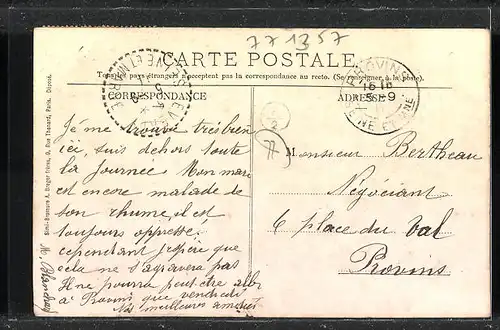 771357
CARTE POSTALE
Tous les pays étrangers n'acceptent pas la correspondance au recto. (Se renseigner à la poste).
CORRESPONDANCE
ADRESSE
PROVINS
16 10
5-9
SEINE ET MARNE
SEINE ET MARNE
77
Je me trouve très bien
ici, suis dehors toute
la journée Mon mari
est encore malade de
son rhume, il est
toujours oppressé.
cependant j'espère que
cela ne s'agravera pas
Il ne pourra peut être aller
à Provins que vendredi
Nos meilleures amitiés
Monsieur Bertheau
Négociant
6 place du Val
Provins
Simi-Bromure A. Breger frères, 9, Rue Thénard, Paris. Déposé.